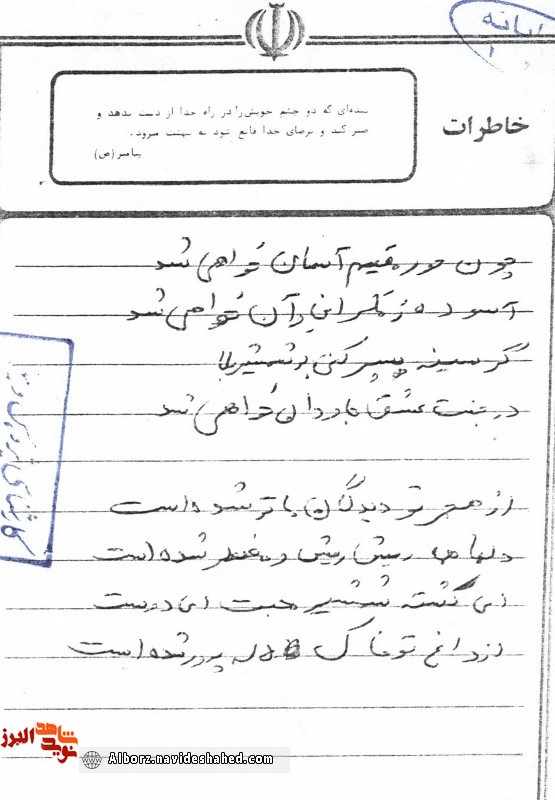 خاطرات
بنده‌ای که دو چشم خویش را در راه خدا از دست بدهد و
صبر کند و برضای خدا قانع شود به بهشت میرود.
پیامبر (ص)
چون حور مقیم آسمان خواهی شد
آسوده ز این و آن خواهی شد
گر سینه سپر کنی بر شمشیر بلا
در جنت عشق جاودان خواهی شد
از هجر تو دیدگان ما تر شده است
دلها همه ریش ریش و مضطر شده است
ای کشته شمشیر محبت ای دوست
از داغ تو خاک لاله پرور شده است
نوید شاهد البرز
Alborz.navideshahed.com